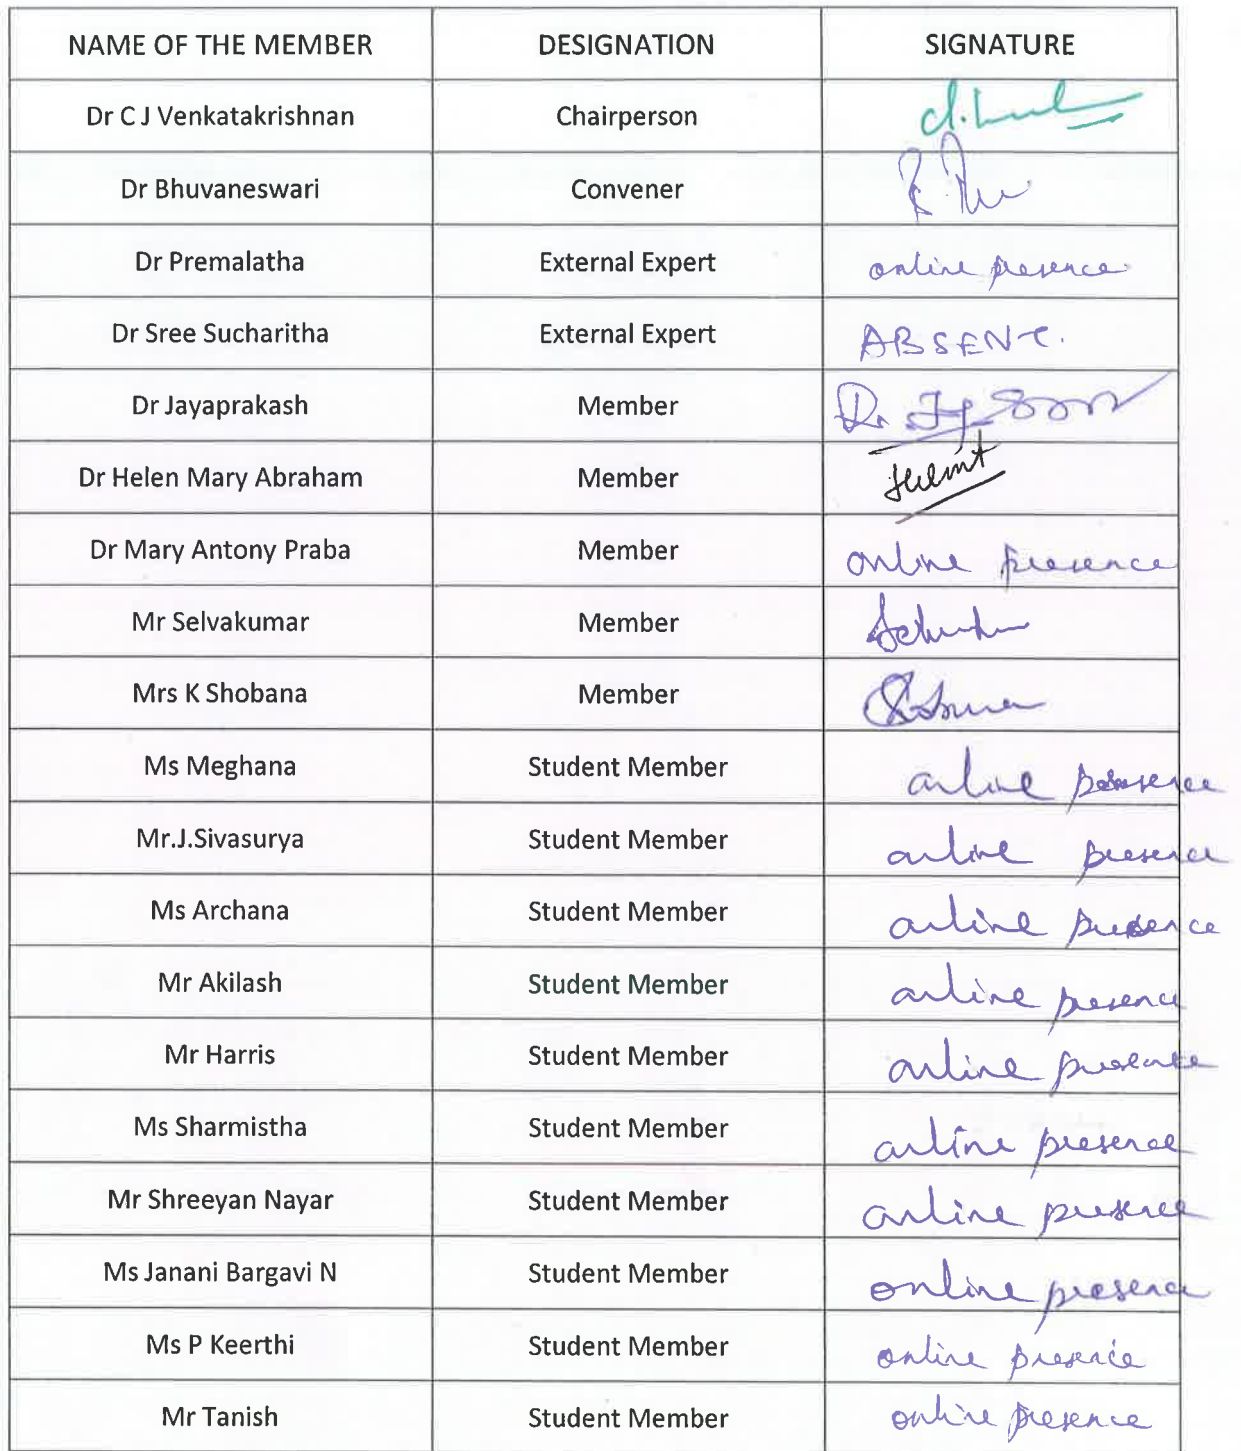 NAME OF THE MEMBER DESIGNATION SIGNATURE
Dr C J Venkatakrishnan Chairperson
Dr Bhuvaneswari Convener
Dr Premalatha External Expert online presence
Dr Sree Sucharitha External Expert ABSENT.
Dr Jayaprakash Member Dr.
Dr Helen Mary Abraham Member
Dr Mary Antony Praba Member online presence
Mr Selvakumar Member
Mrs K Shobana Member
Ms Meghana Student Member online presence
Mr.J.Sivasurya Student Member online presence
Ms Archana Student Member online presence
Mr Akilash Student Member online presence
Mr Harris Student Member online presence
Ms Sharmistha Student Member online presence
Mr Shreeyan Nayar Student Member online presence
Ms Janani Bargavi N Student Member online presence
Ms P Keerthi Student Member online presence
Mr Tanish Student Member online presence